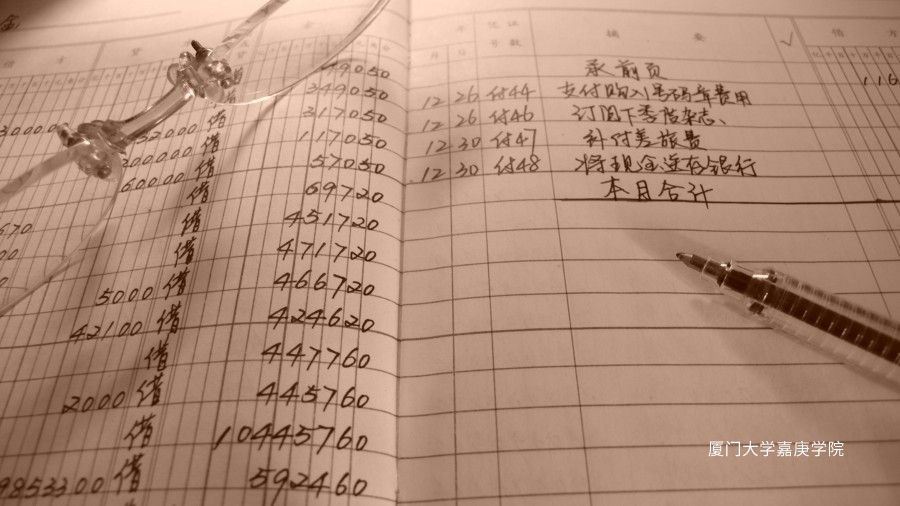 金
方 贷 金
49050
349050
32000 借 317050
200000 借 117050
60000 借 57050
借 69720
借 451720
借 471720
5000 借 466720
42100 借 424620
借 447760
2000 借 445760
借 10445760
9853300 借 592460
年 凭证 摘要 √ 借方
月 号数
承前页 116
12 26 付44 支付购入号码年费用
12 26 付46 订阅下季度杂志、
12 30 付47 补付差旅费
12 30 付48 将现金送存银行
本月合计
厦门大学嘉庚学院